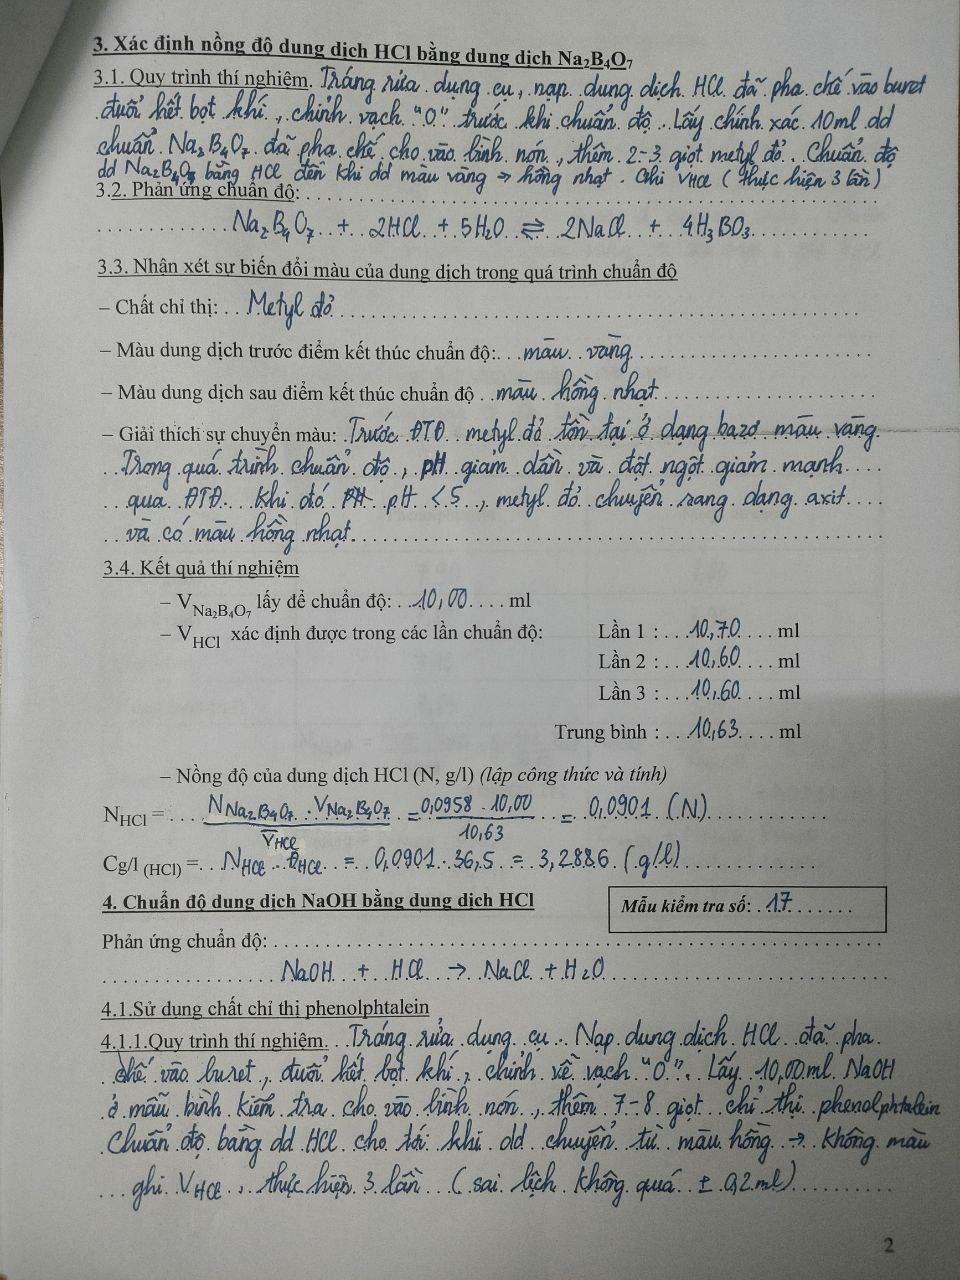 3. Xác định nồng độ dung dịch HCl bằng dung dịch Na₂B₄O₇
3.1. Quy trình thí nghiệm. Tráng rửa dụng cụ, nạp dung dịch HCl đã pha chế vào buret
đuổi hết bọt khí, chỉnh vạch "0" trước khi chuẩn độ. Lấy chính xác 10ml dd
chuẩn Na₂B₄O₇ đã pha chế cho vào bình nón, thêm 2-3 giọt metyl đỏ. Chuẩn độ
dd Na₂B₄O₇ bằng HCl đến khi dd màu vàng → hồng nhạt. Ghi VHCl (thực hiện 3 lần)
3.2. Phản ứng chuẩn độ:
Na₂B₄O₇ + 2HCl + 5H₂O ⇌ 2NaCl + 4H₃BO₃
3.3. Nhận xét sự biến đổi màu của dung dịch trong quá trình chuẩn độ
– Chất chỉ thị: Metyl đỏ
– Màu dung dịch trước điểm kết thúc chuẩn độ: màu vàng
– Màu dung dịch sau điểm kết thúc chuẩn độ màu hồng nhạt
– Giải thích sự chuyển màu: Trước ĐTĐ metyl đỏ tồn tại ở dạng bazơ màu vàng.
Trong quá trình chuẩn độ, pH giảm dần và đột ngột giảm mạnh
qua ĐTĐ. Khi đó pH < 5, metyl đỏ chuyển sang dạng axit
và có màu hồng nhạt.
3.4. Kết quả thí nghiệm
– V Na₂B₄O₇ lấy để chuẩn độ: 10,00 ml
– V HCl xác định được trong các lần chuẩn độ: Lần 1 : 10,70 ml
Lần 2 : 10,60 ml
Lần 3 : 10,60 ml
Trung bình : 10,63 ml
– Nồng độ của dung dịch HCl (N, g/l) (lập công thức và tính)
N HCl = N Na₂B₄O₇ . V Na₂B₄O₇ / V̅HCl = 0,0958 . 10,00 / 10,63 = 0,0901 (N)
Cg/l (HCl) = N HCl . Đ HCl = 0,0901 . 36,5 = 3,2886 (g/l)
4. Chuẩn độ dung dịch NaOH bằng dung dịch HCl
Mẫu kiểm tra số: 17
Phản ứng chuẩn độ:
NaOH + HCl → NaCl + H₂O
4.1.Sử dụng chất chỉ thị phenolphtalein
4.1.1.Quy trình thí nghiệm. Tráng rửa dụng cụ. Nạp dung dịch HCl đã pha
chế vào buret, đuổi hết bọt khí, chỉnh về vạch "0". Lấy 10,00ml NaOH
ở mẫu bình kiểm tra cho vào bình nón, thêm 7-8 giọt chỉ thị phenolphtalein
Chuẩn độ bằng dd HCl cho tới khi dd chuyển từ màu hồng → không màu
ghi VHCl, thực hiện 3 lần (sai lệch không quá ± 0,2ml)
2